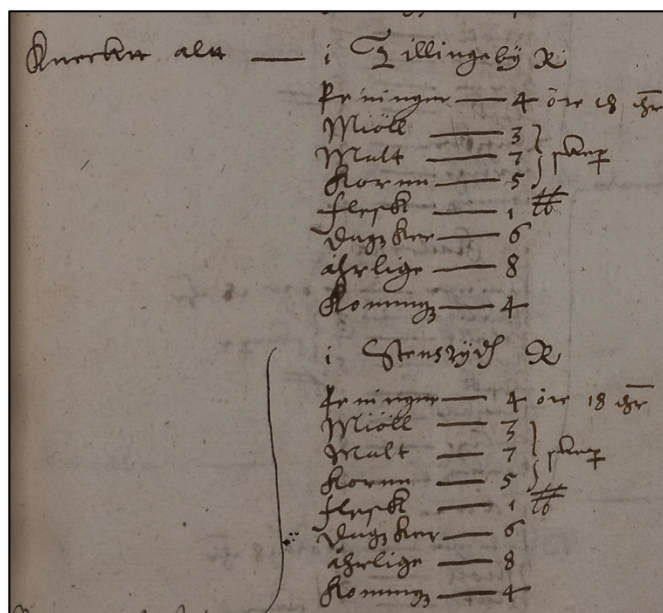 Knecktt altt — i Tillingeby R
Peninger — 4 öre 18 ₰r
Miöll — 3
Malt — 7 skep
Kornn — 5
flesk — 1 ℔
Dagzker — 6
åhrlige — 8
Konungz — 4
i Stensryd R
Peninger — 4 öre 18 ₰r
Miöll — 3
Malt — 7 skep
Kornn — 5
flesk — 1 ℔
Dagzker — 6
åhrlige — 8
Konungz — 4